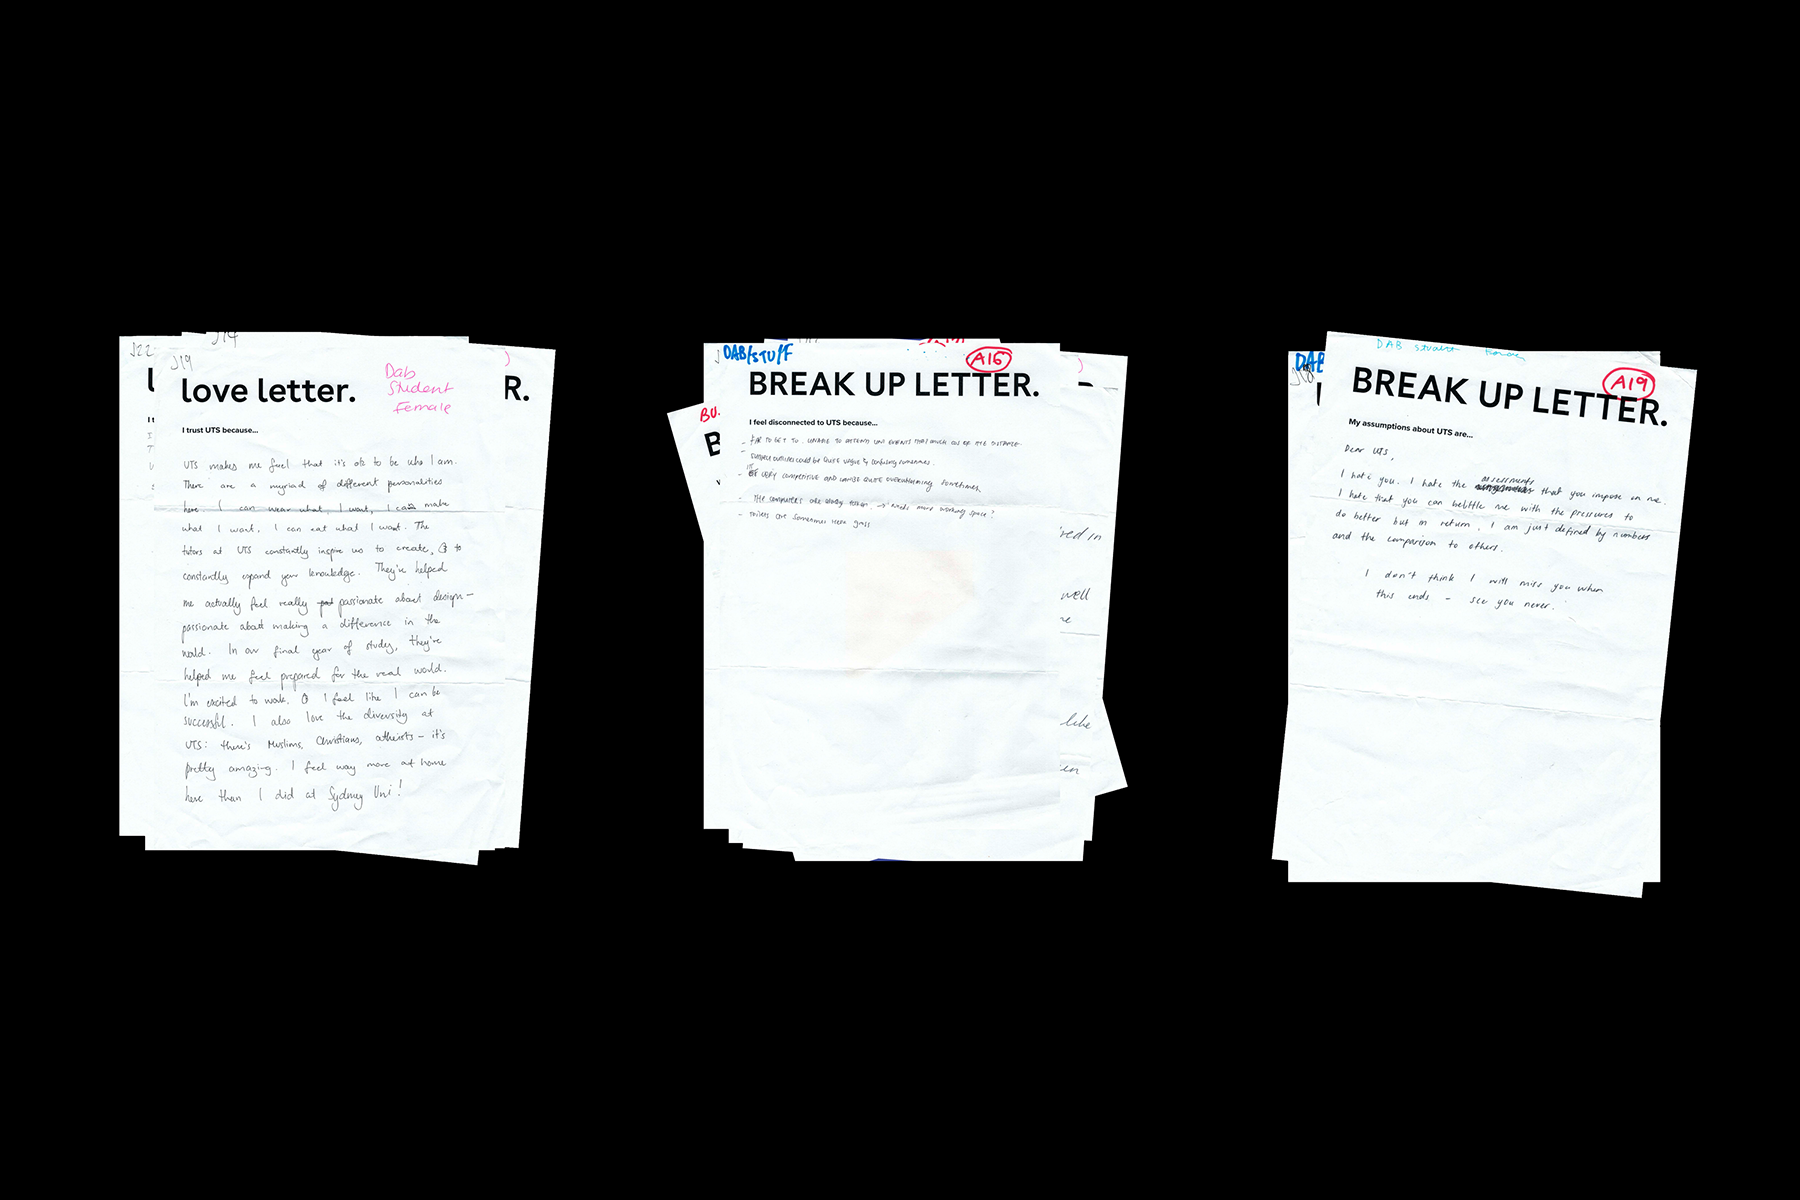 J22
J19
J19
love letter.
Dab
Student
Female
R.
I trust UTS because...
UTS makes me feel that it's ok to be who I am.
There are a myriad of different personalities
here. I can wear what I want, I can make
what I want. I can eat what I want. The
tutors at UTS constantly inspire us to create, & to
constantly expand your knowledge. They've helped
me actually feel really passionate about design –
passionate about making a difference in the
world. In our final year of study, they've
helped me feel prepared for the real world.
I'm excited to work. & I feel like I can be
successful. I also love the diversity at
UTS: there's Muslims, Christians, atheists – it's
pretty amazing. I feel way more at home
here than I did at Sydney Uni!
DAB/STU/F
A16
BU.
B
BREAK UP LETTER.
I feel disconnected to UTS because...
- FAR TO GET TO. UNABLE TO ATTEND UNI EVENTS THAT MUCH COS OF THE DISTANCE
- SUBJECT OUTLINES COULD BE QUITE VAGUE & confusing sometimes.
- IT'S VERY COMPETITIVE AND COULD BE QUITE OVERWHELMING sometimes
- THE COMPUTERS ARE always taken → needs more working space?
- toilets are sometimes gross
well
like
DAB
J18
DAB student
A19
BREAK UP LETTER.
My assumptions about UTS are...
Dear UTS,
I hate you. I hate the assessments that you impose on me.
I hate that you can belittle me with the pressures to
do better but in return, I am just defined by numbers
and the comparison to others.
I don't think I will miss you when
this ends – see you never.